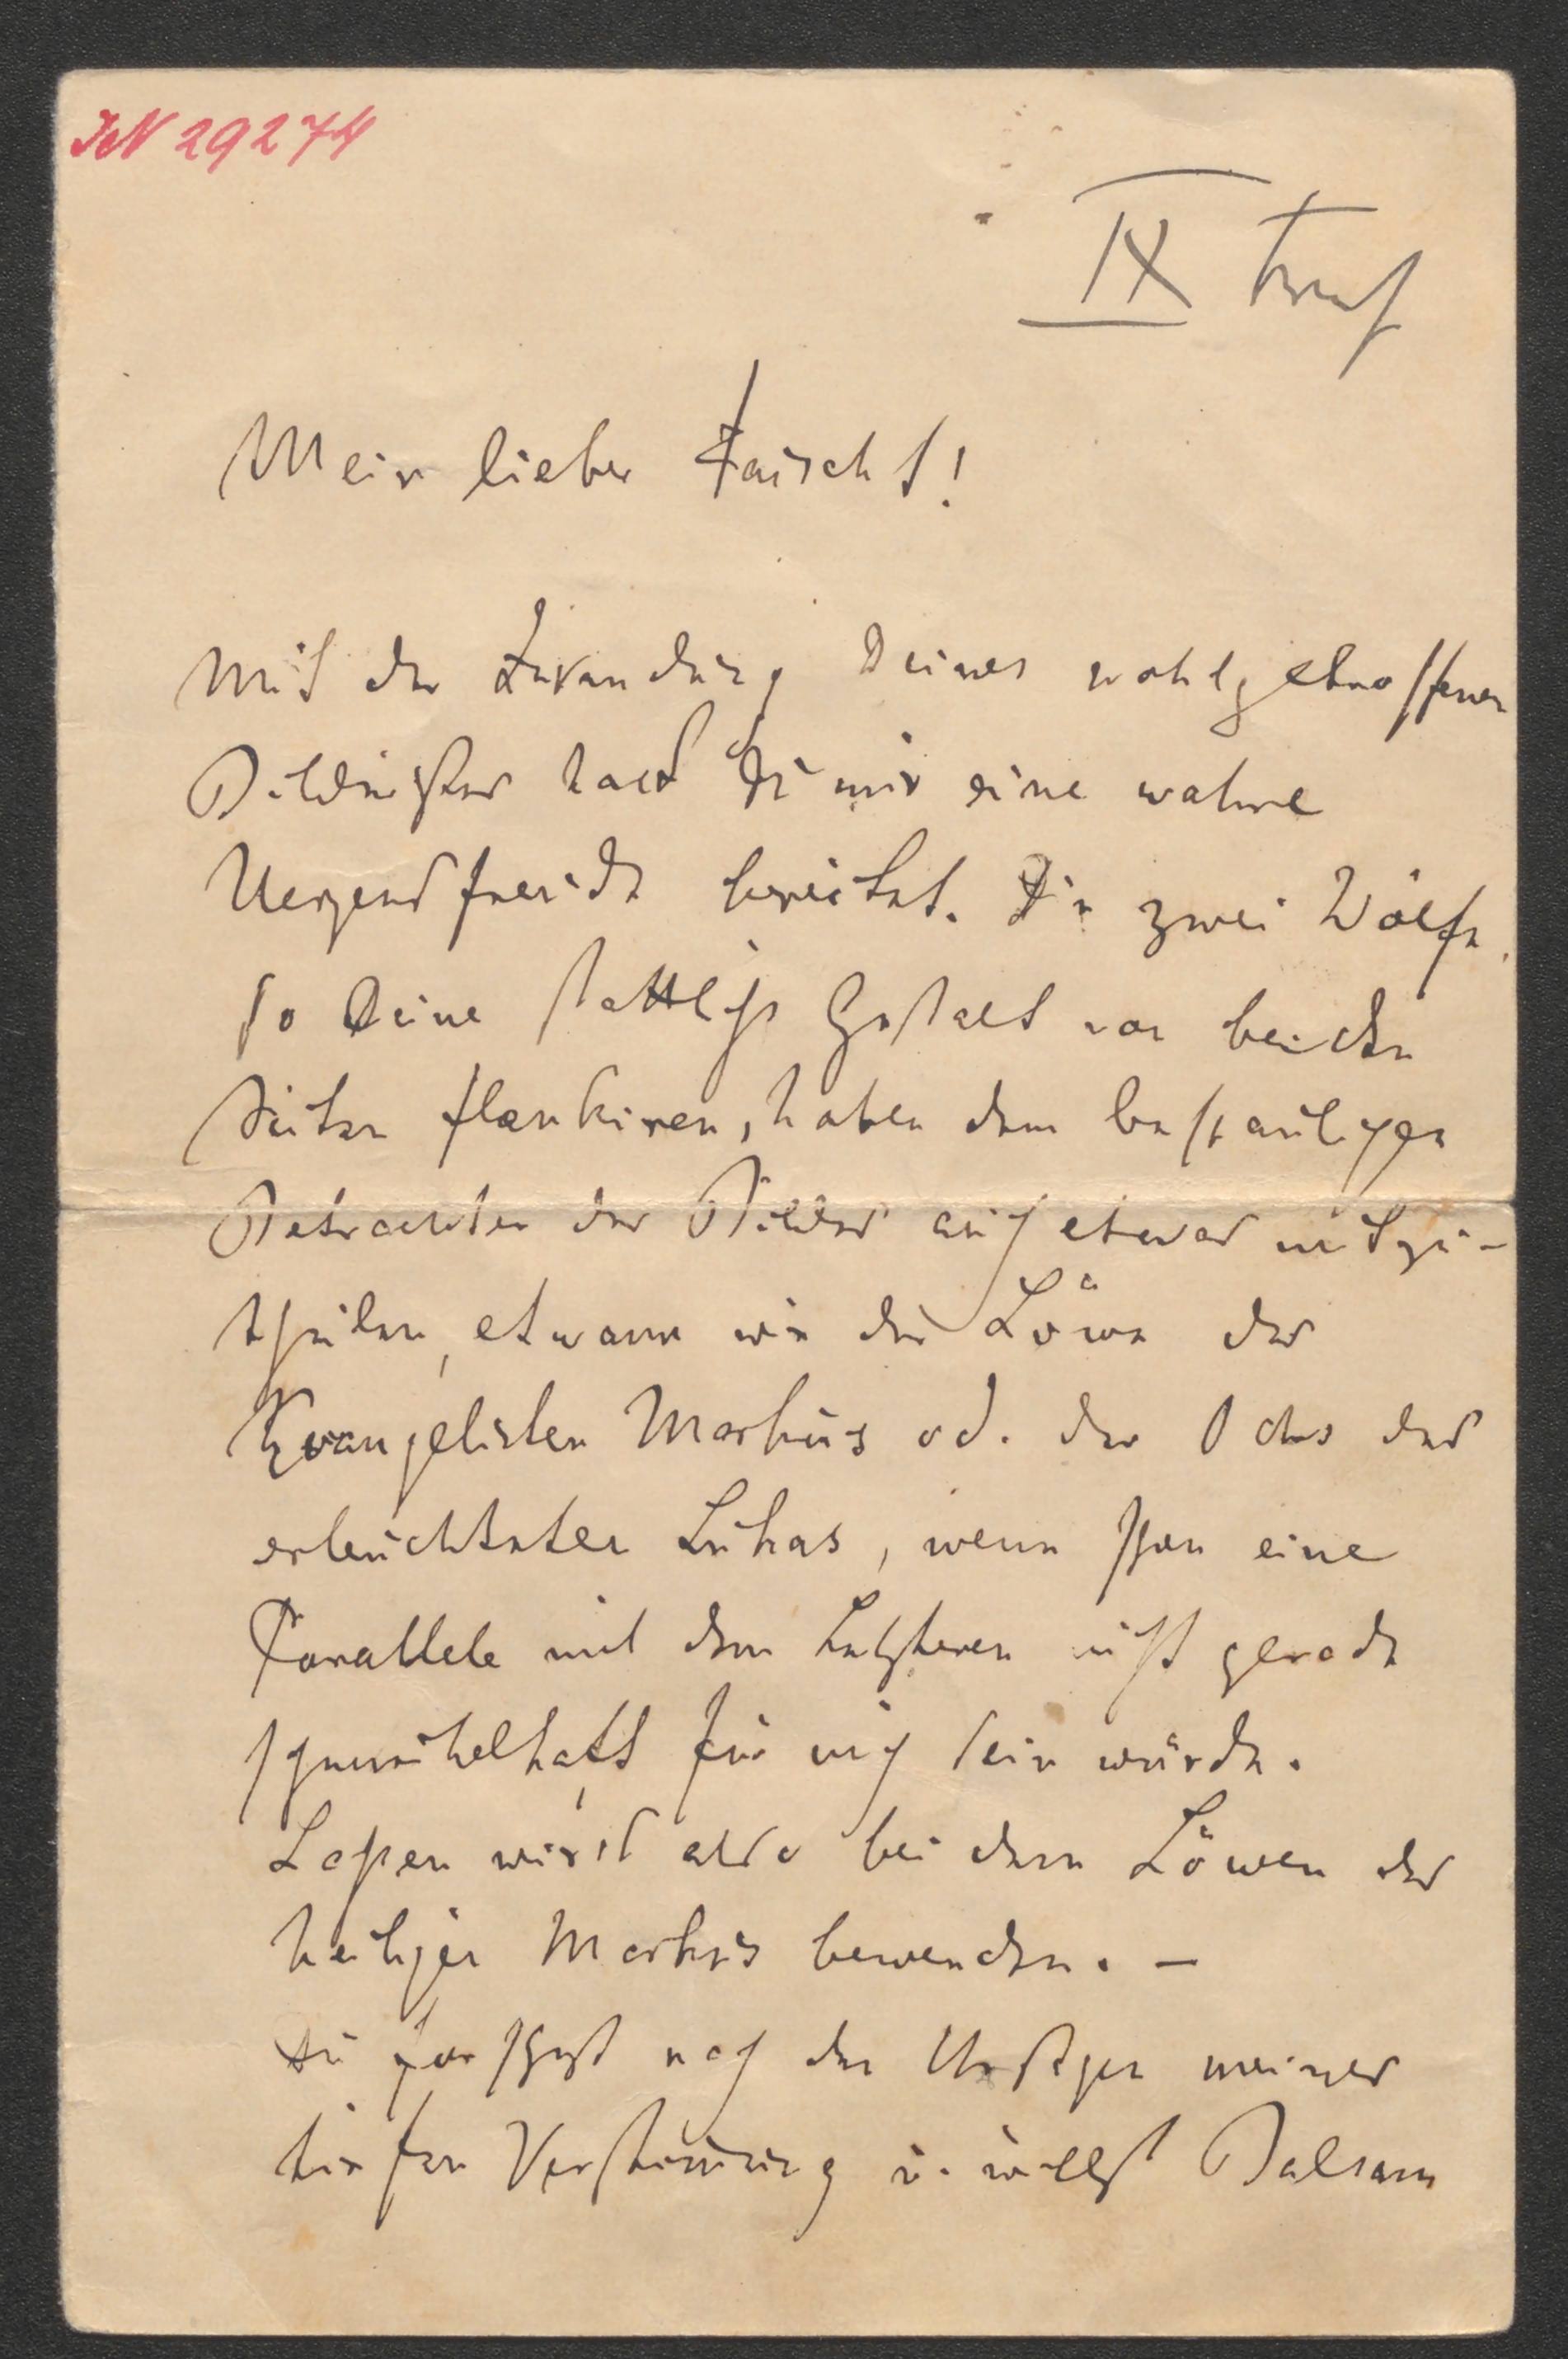 IN 29274
IX
Mein lieber Faischt!
Mit der Zusendung Deines wohlgetroffenen
Bildnisses hast Du mir eine wahre
Herzensfreude bereitet. Die zwei Wölfe,
so Deine stattliche Gestalt von beiden
Seiten flankiren, haben dem beschaulichen
Betrachter des Bildes auch etwas mitzu-
theilen, etwann wie der Löwe des
Evangelisten Markus od. der Ochs des
erleuchteten Lukas, wenn schon eine
Parallele mit dem Letzteren nicht gerade
schmeichelhaft für mich sein würde.
Lassen wir's also bei dem Löwen des
heiligen Markus bewenden. –
Du forschest nach der Ursache meiner
tiefen Verstimmung u. willst Balsam